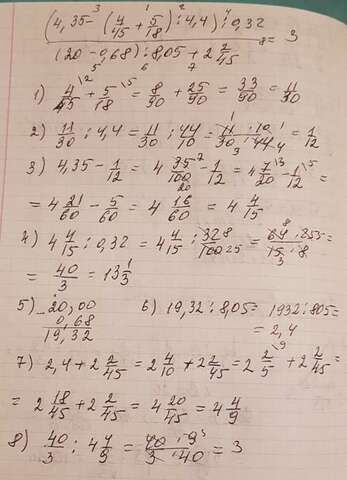 (4,35-(4/45+5/18):4,4):0,32
(20-0,68):8,05+2 2/45 = 3
1) 4/45+5/18=8/90+25/90=33/90=11/30
2) 11/30:4,4=11/30:44/10=11·10/30·44=1/12
3) 4,35-1/12=4 35/100-1/12=4 7/20-1/12=
=4 21/60-5/60=4 16/60=4 4/15
4) 4 4/15:0,32=4 4/15:32/100=64·25/15·8=
=40/3=13 1/3
5) -20,00 6) 19,32:8,05=1932:805=
0,68 =2,4
19,32
7) 2,4+2 2/45=2 4/10+2 2/45=2 2/5+2 2/45=
=2 18/45+2 2/45=4 20/45=4 4/9
8) 40/3:4 4/9=40·9/3·40=3